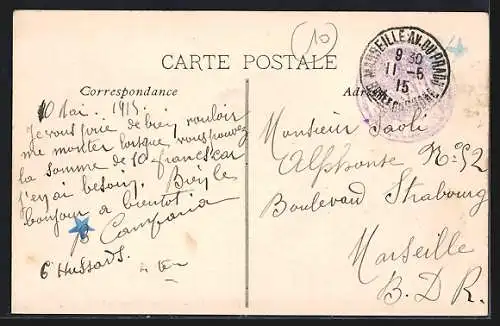 (10)
CARTE POSTALE
Correspondance
Adr
MARSEILLE AV. DU PRADO
9 30
11 - 6
15
BOUCHES DU RHONE
10 Mai. 1915.
Je vous prie de bien vouloir
me monter lorsque vous pouvez
la somme de 10 francs car
j'en ai besoin. Bien le
bonjour a bientot
Campana
6 Hussards.
Monsieur Paoli
Alphonse No 52
Boulevard Strabourg
Marseille
B. D. R.